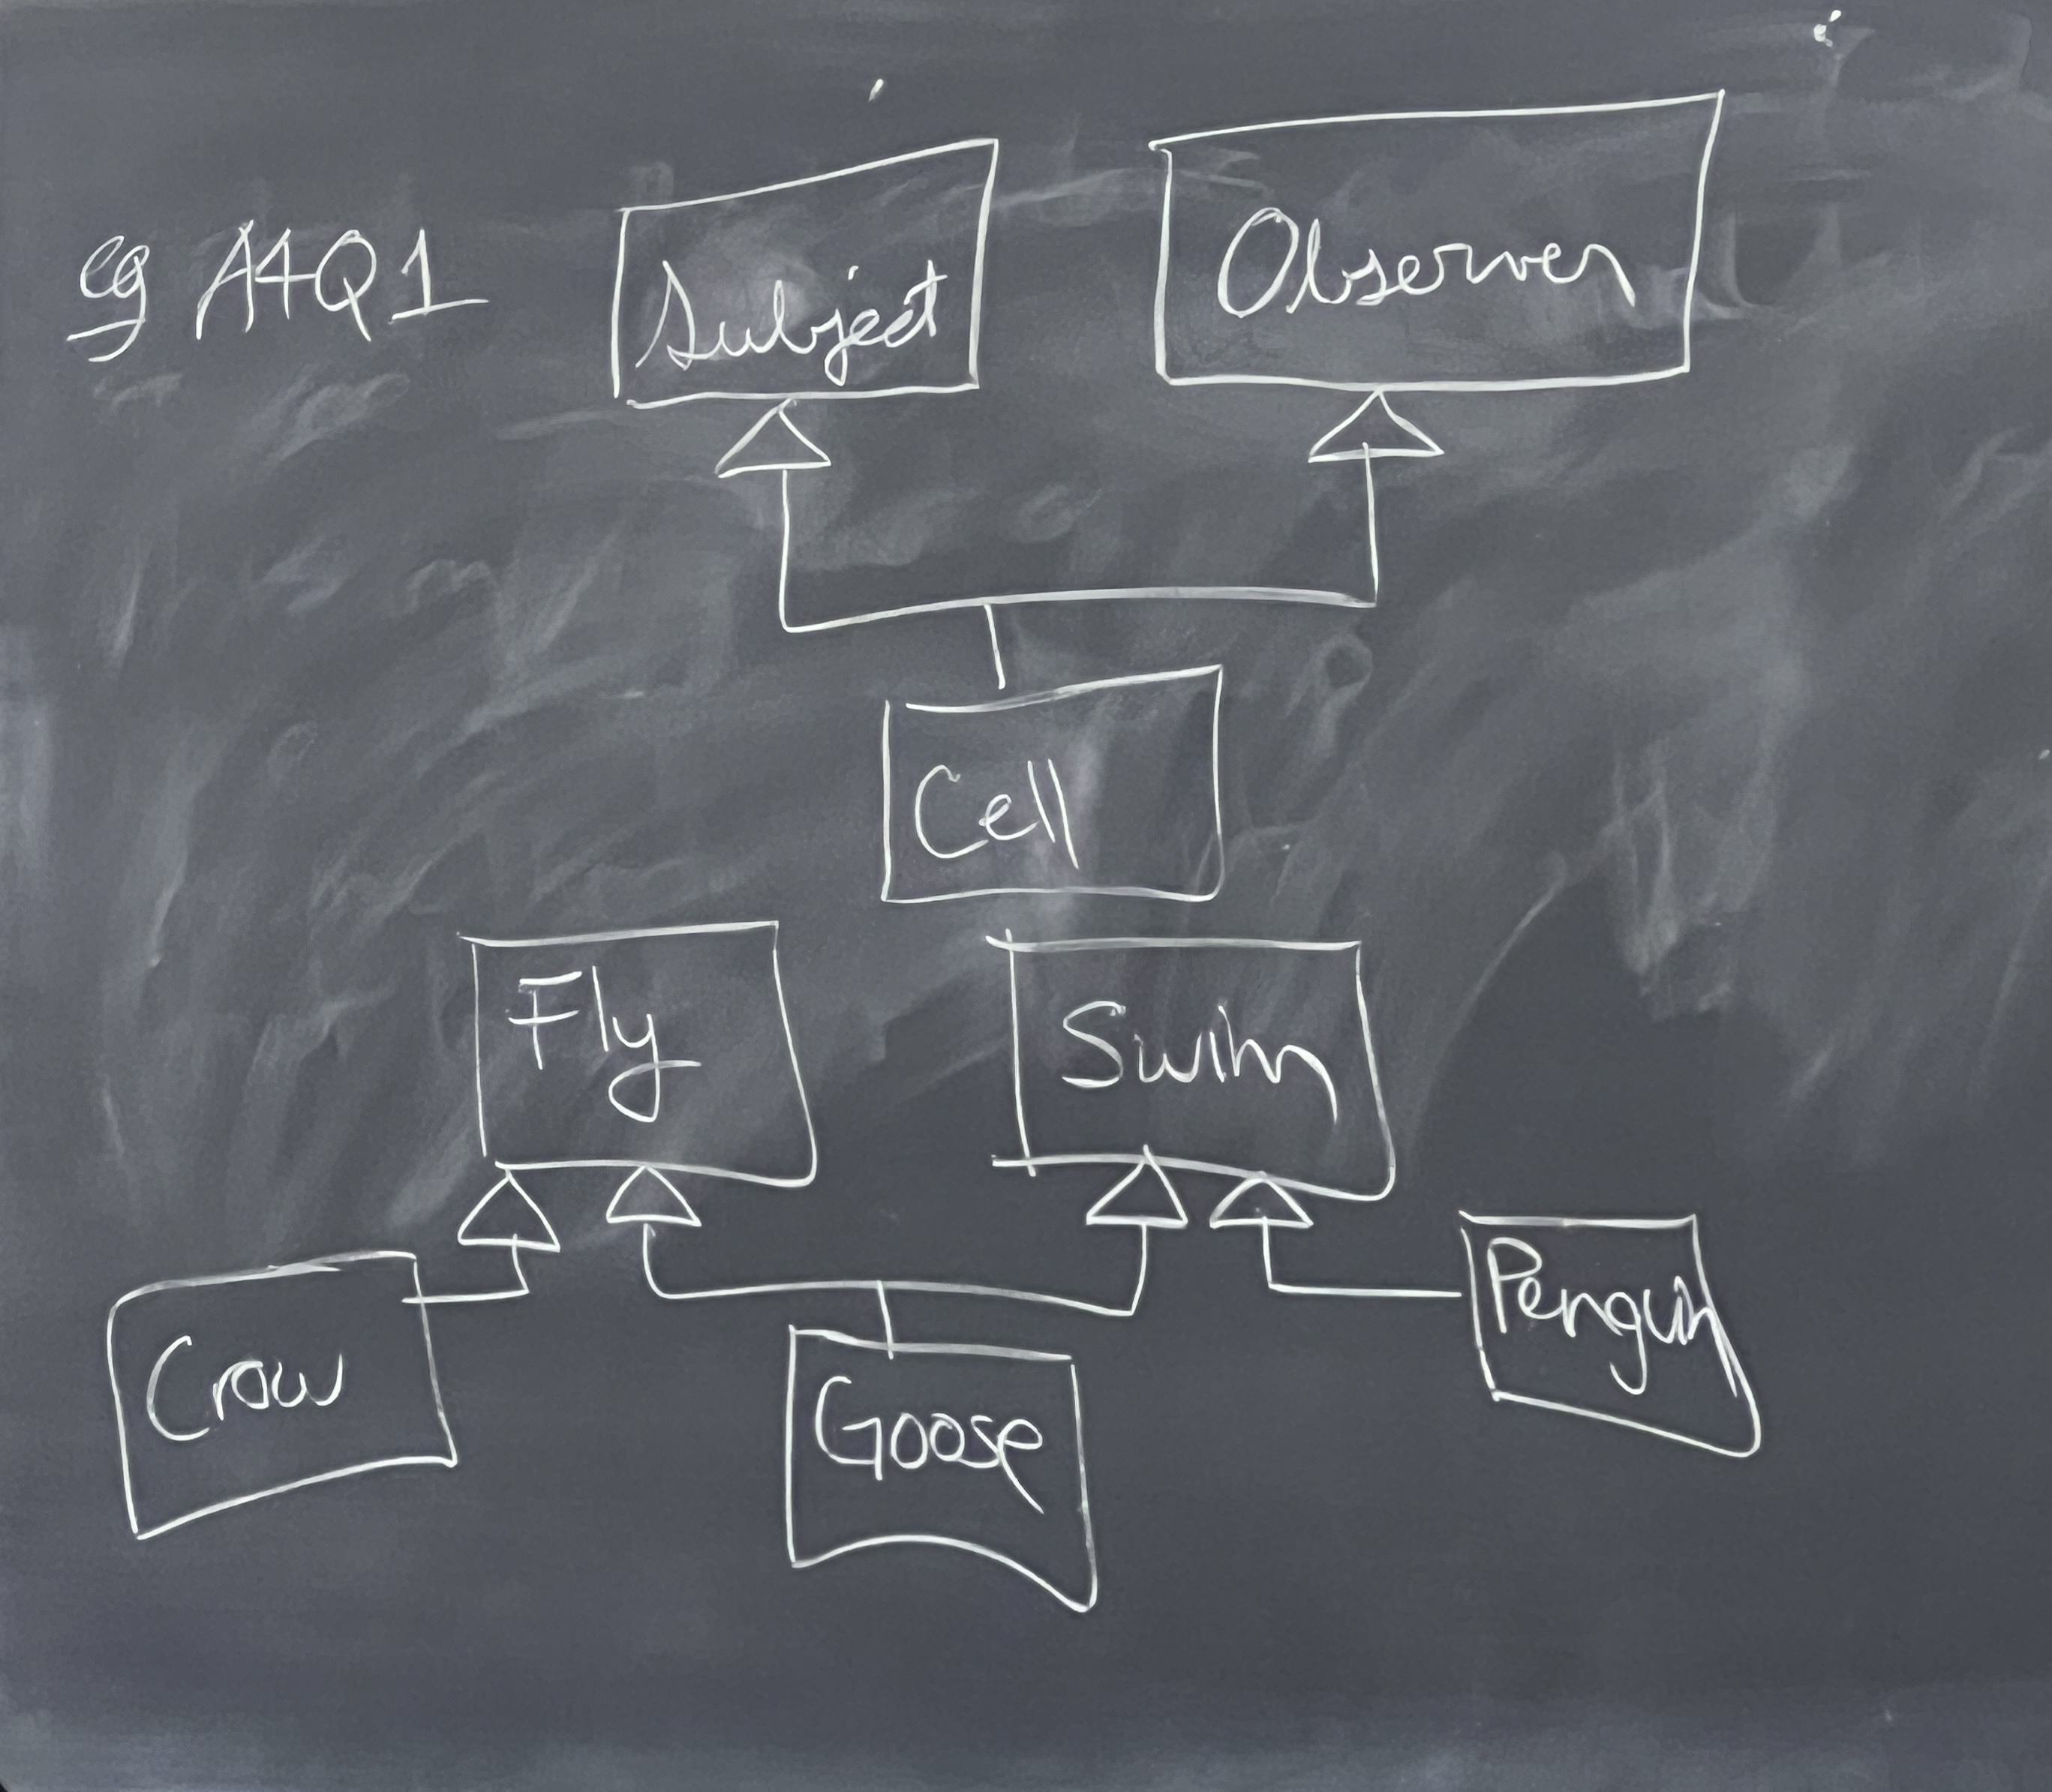 eg A4Q1
Subject
Observer
Cell
Fly
Swim
Crow
Goose
Penguin